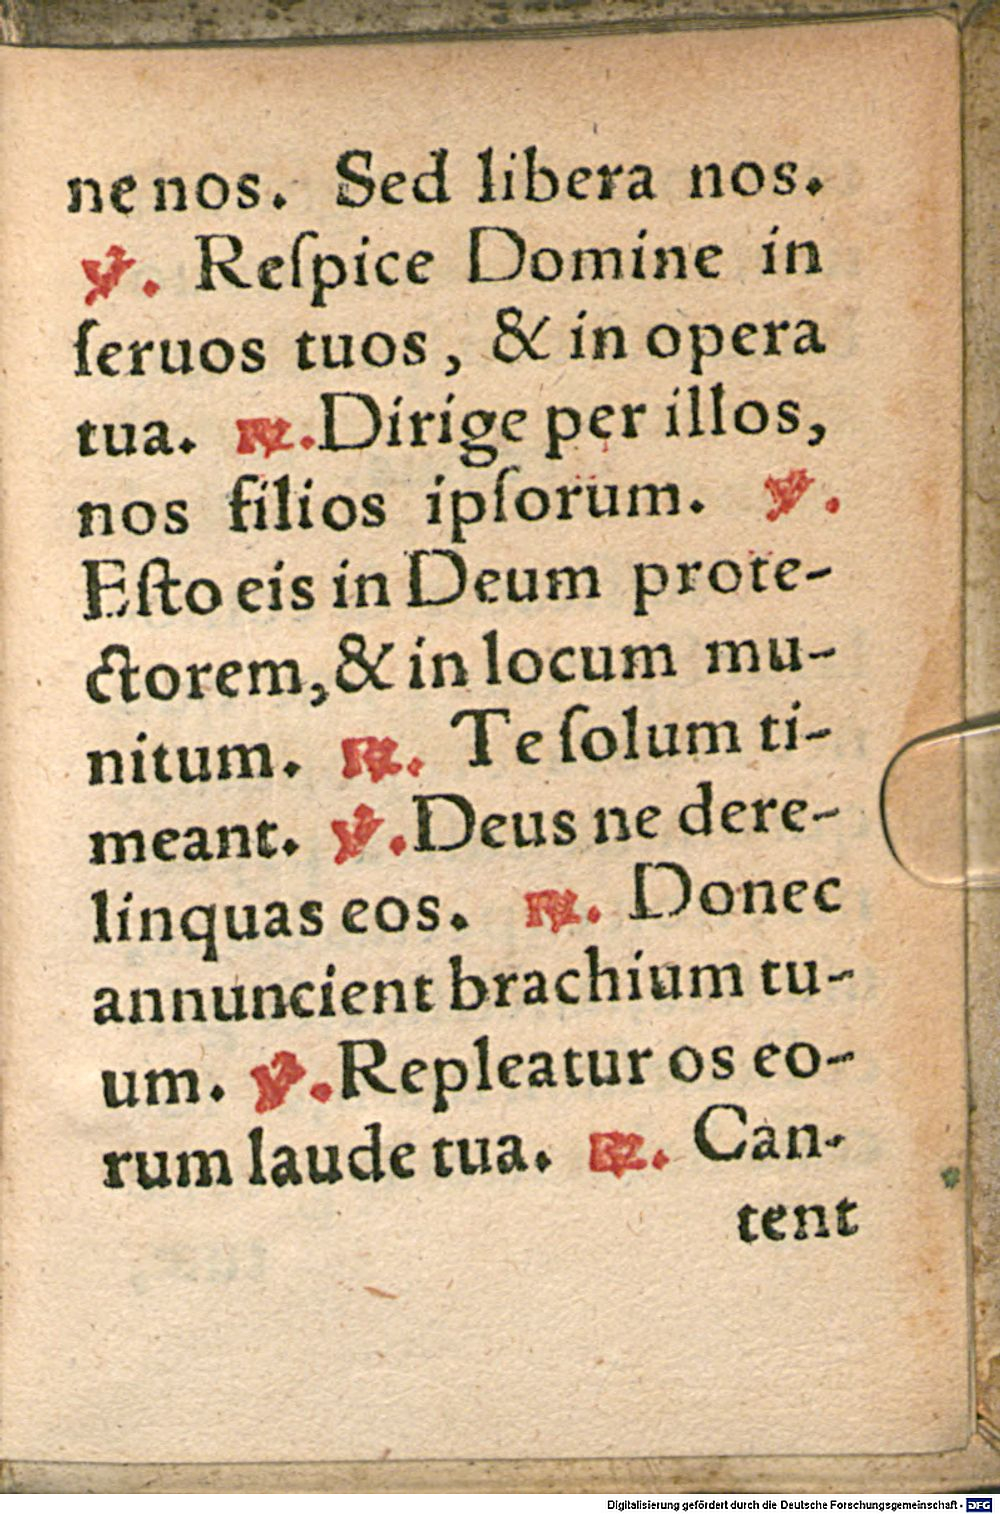 ne nos. Sed libera nos.
℣. Reſpice Domine in
ſeruos tuos, & in opera
tua. ℟. Dirige per illos,
nos filios ipſorum. ℣.
Eſto eis in Deum prote-
ctorem, & in locum mu-
nitum. ℟. Te ſolum ti-
meant. ℣. Deus ne dere-
linquas eos. ℟. Donec
annuncient brachium tu-
um. ℣. Repleatur os eo-
rum laude tua. ℟. Can-
tent
Digitalisierung gefördert durch die Deutsche Forschungsgemeinschaft - DFG